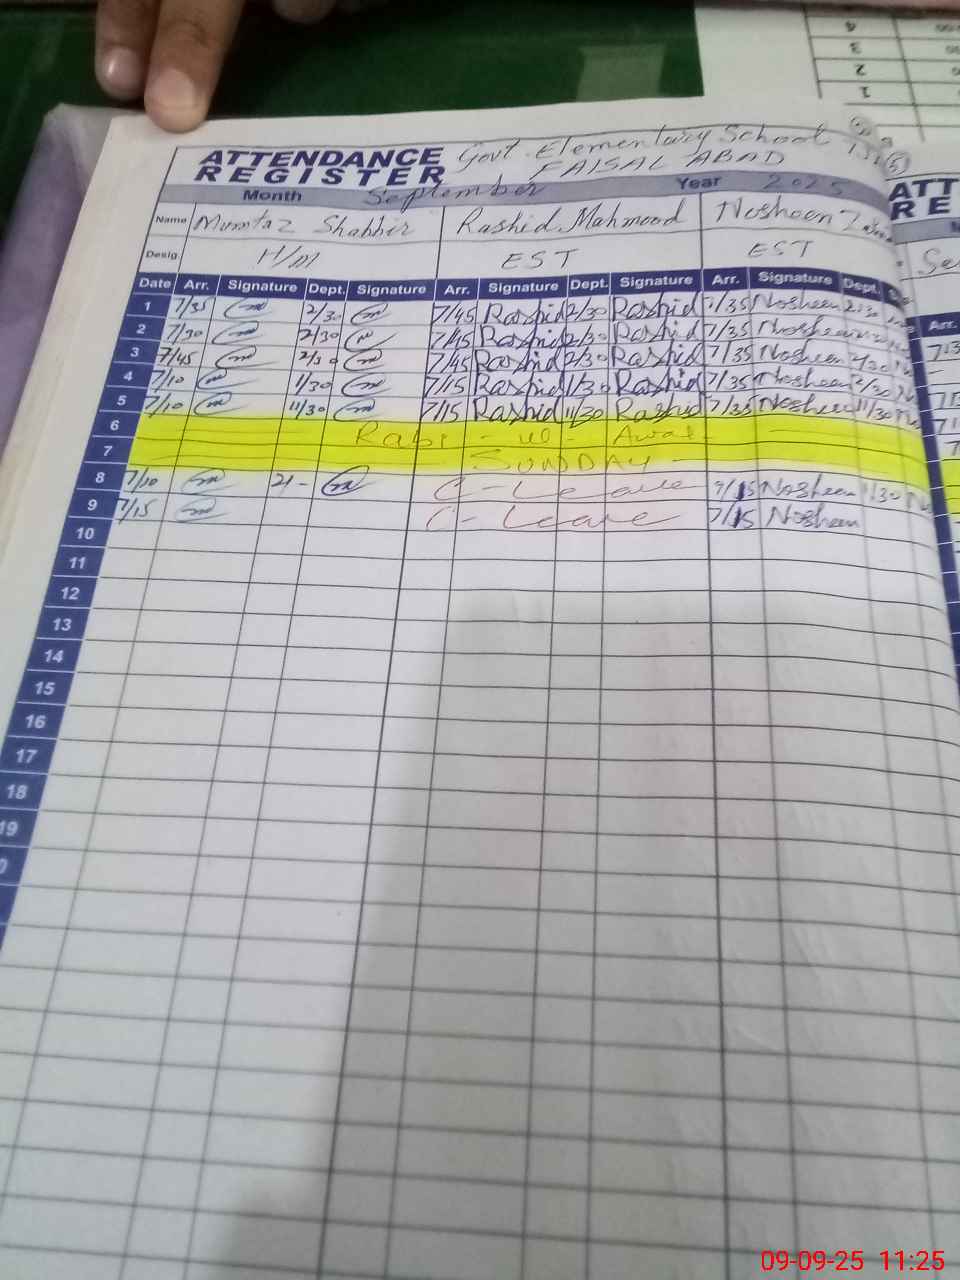 ATTENDANCE REGISTER Govt. Elementary School
FAISAL ABAD
Month September Year 2025
Name Mumtaz Shabbir Rashid Mahmood Nosheen
Desig. H/M EST EST
Date Arr. Signature Dept. Signature Arr. Signature Dept. Signature Arr. Signature Dept.
1 7/35 2/30 7/45 Rashid 2/30 Rashid 7/35 Nosheen 2/30
2 7/30 2/30 7/45 Rashid 2/30 Rashid 7/35 Nosheen
3 7/45 2/30 7/45 Rashid 2/30 Rashid 7/35 Nosheen 2/30
4 7/10 1/30 7/15 Rashid 1/30 Rashid 7/35 Nosheen 2/30
5 7/10 11/30 7/15 Rashid 11/30 Rashid 7/35 Nosheen 11/30
6 Rabi - ul - Awal
7 SUNDAY -
8 7/10 2/- C - Leave 7/15 Nosheen 1/30
9 7/15 C - Leave 7/15 Nosheen
10
11
12
13
14
15
16
17
18
19
ATT
RE
Arr.
4
3
2
1
09-09-25 11:25